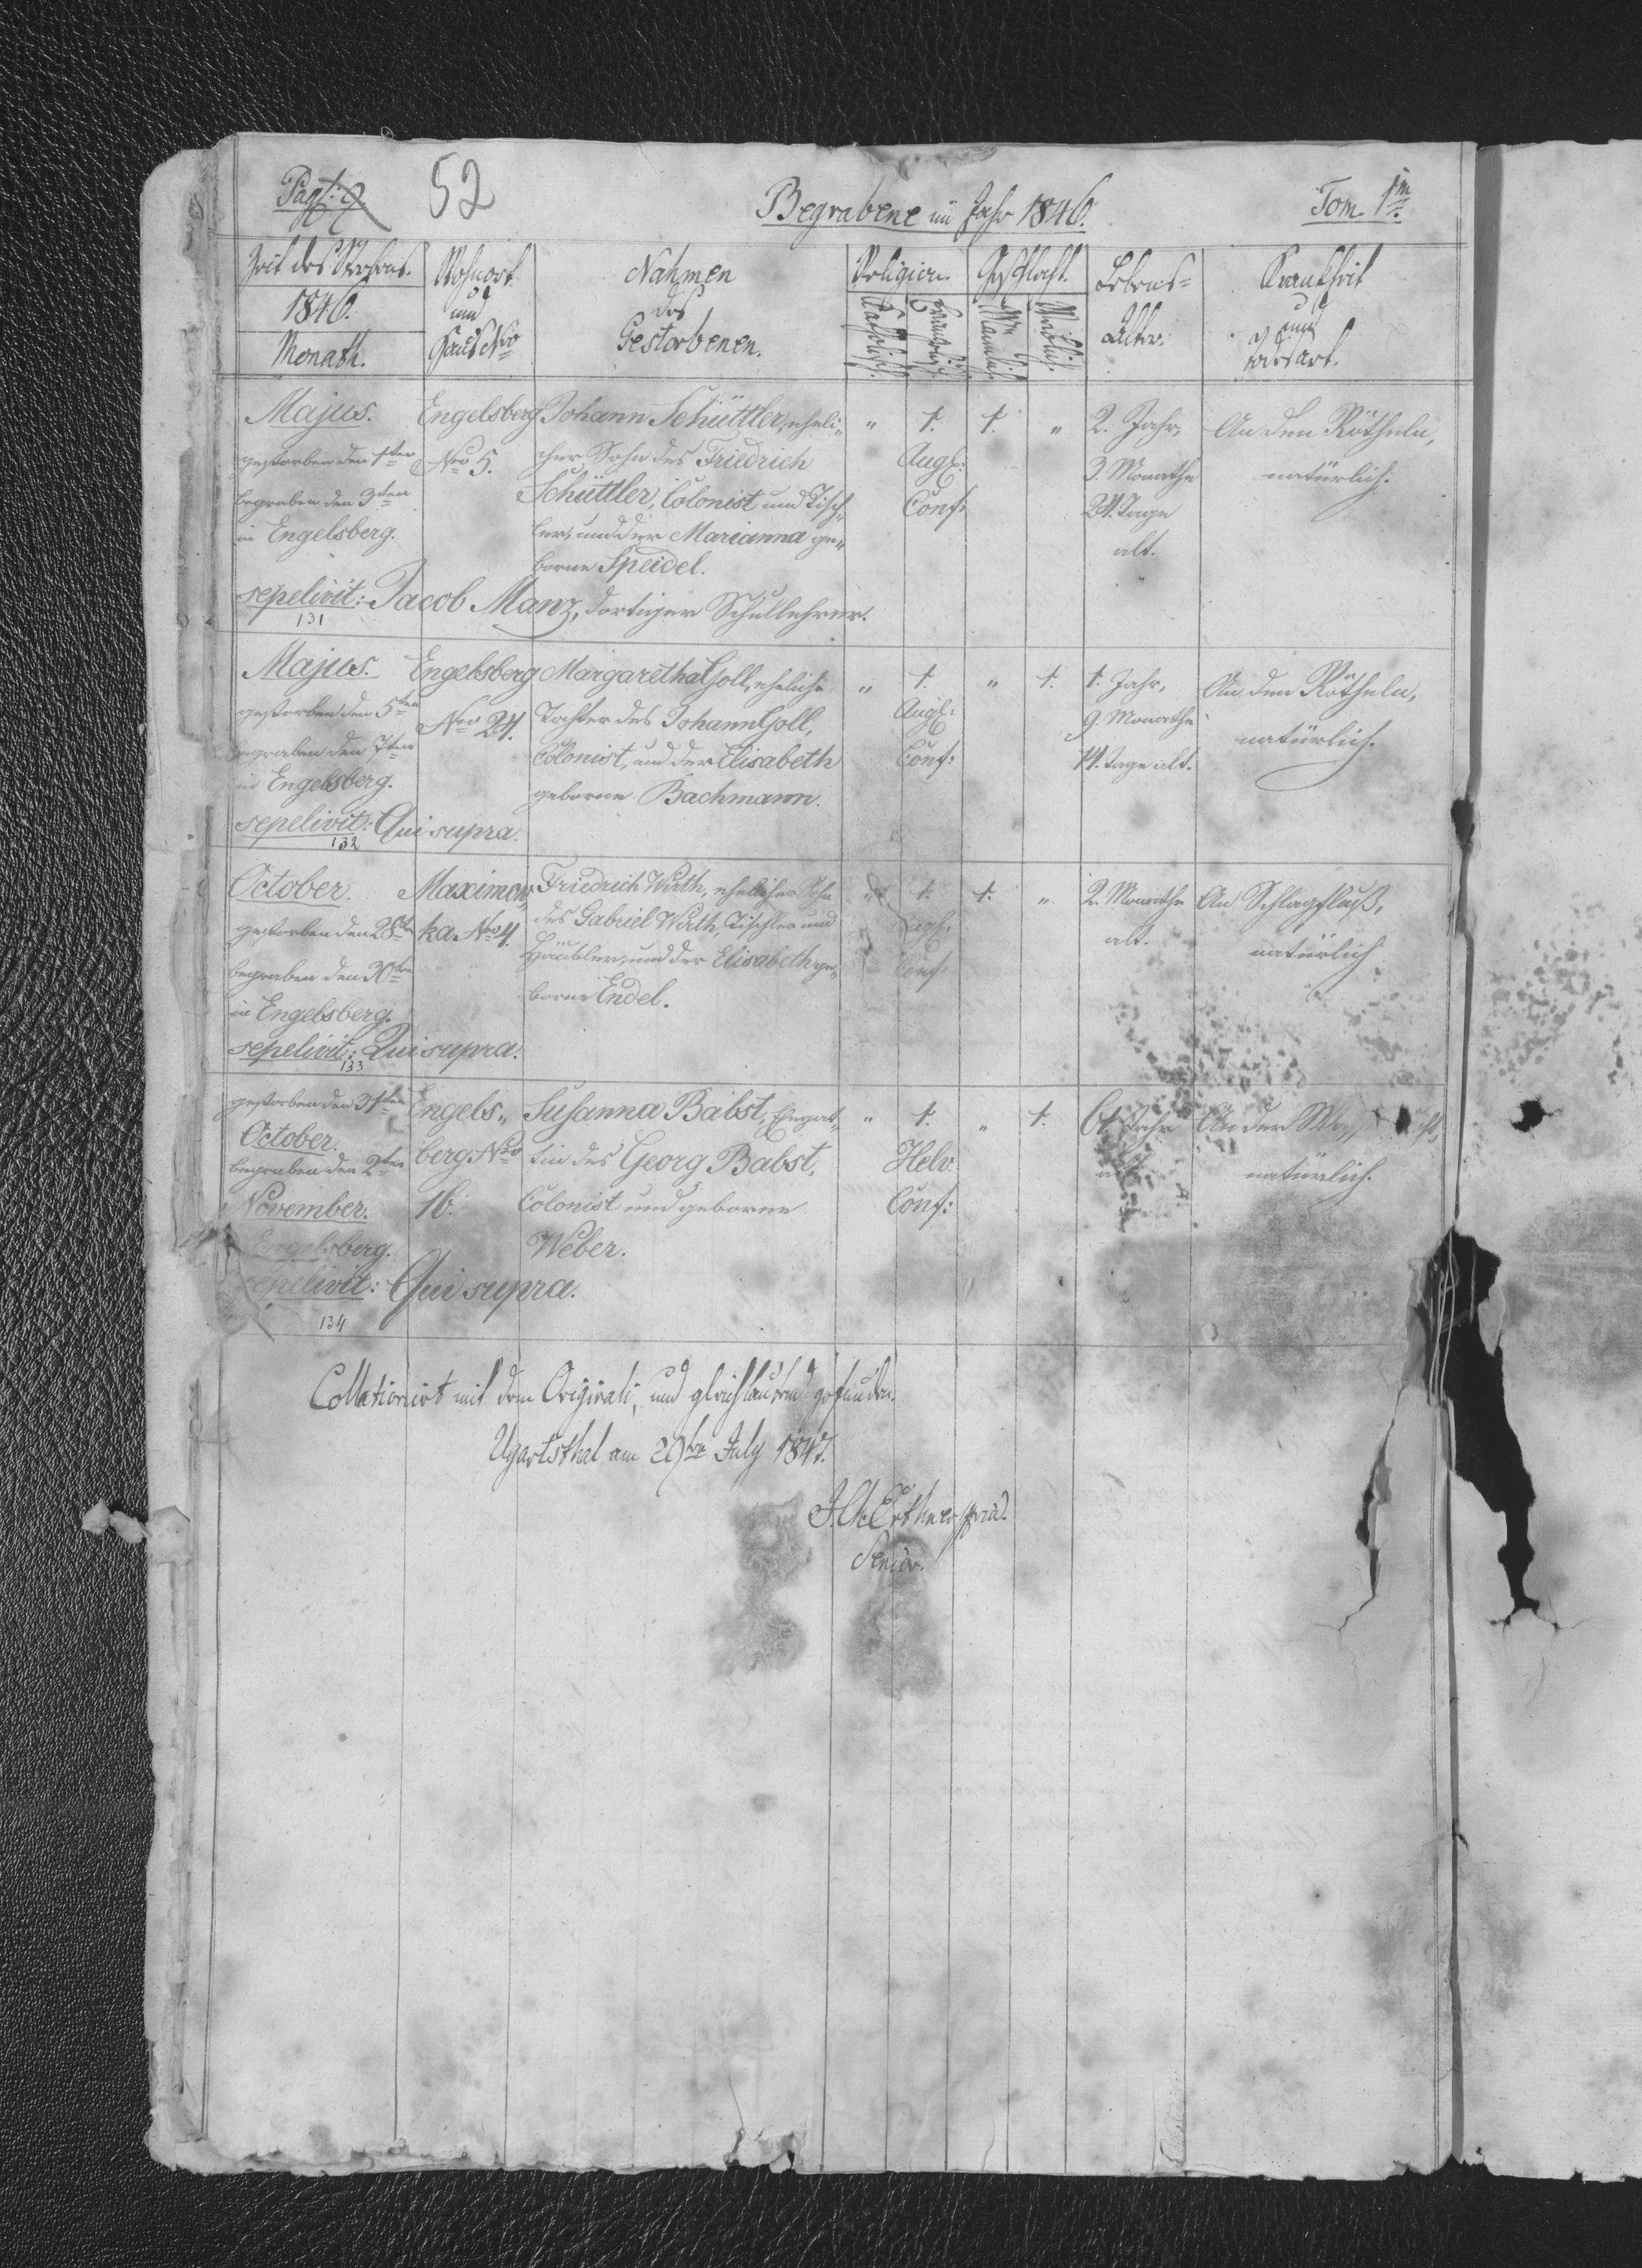 Pag: 9. 52 Begrabene im Jahr 1846. Tom 1m.
Zeit des Sterbens. Wohnort Nahmen Religion. Geschlecht. Lebens= Krankheit
1846. und des Katholisch. Evangelisch. Männlich. Weiblich. Alter. und
Monath. Haus Nro Gestorbenen. Todesart.
Majus. Engelsberg Johann Schüttler, eheli„ „ 1. 1. „ 2. Jahr, An den Rötheln,
gestorben den 1ten Nro 5. cher Sohn des Friedrich Augs: 3. Monathe natürlich.
begraben den 3ten Schüttler, Colonist und Tisch„ Conf: 24. Tage
in Engelsberg. ler, und der Marianna ge„ alt.
borne Speidel.
sepelivit: Jacob Manz, dortiger Schullehrer.
131
Majus. Engelsberg Margaretha Goll, eheliche „ 1. „ 1. 1. Jahr, An den Rötheln,
gestorben den 5ten Nro 24. Tochter des Johann Goll, Augs: 9. Monathe natürlich.
begraben den 7ten Colonist, und der Elisabeth Conf: 14. Tage alt.
in Engelsberg. geborne Bachmann.
sepelivit: Qui supra.
132
October. Maximow„ Friedrich Wirth, ehelicher Sohn „ 1. 1. „ 2. Monathe An Schlagfluß,
gestorben den 28ten ka Nro 4. des Gabriel Wirth, Tischler und Augs: alt. natürlich
begraben den 30ten Häusler, und der Elisabeth ge„ Conf:
in Engelsberg. borne Endel.
sepelivit: Qui supra.
133
gestorben den 31ten Engels„ Susanna Babst, Ehegat„ „ 1. „ 1. 61. Jahr An der
October. berg Nro tin des Georg Babst, Helv: alt. natürlich.
begraben den 2ten 16. Colonist und geborne Conf:
November. Weber.
Engelsberg.
sepelivit: Qui supra.
134
Collationirt mit dem Originali, und gleichlautend gefunden.
Ugartsthal am 29ten July 1847.
Senior.